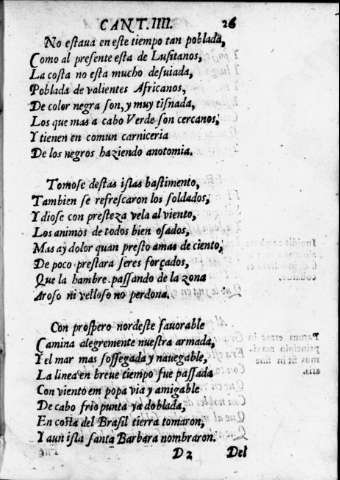 CANT. IIII. 26
No estaua en este tiempo tan poblada,
Como al presente esta de Lusitanos,
La costa no esta mucho desuiada,
Poblada de valientes Africanos,
De color negra son, y muy tisnada,
Los que mas a cabo Verde son cercanos,
Y tienen en comun carniceria
De los negros haziendo anotomia.
Tomose destas islas bastimento,
Tambien se refrescaron los soldados,
Y diose con presteza vela al viento,
Los animos de todos bien osados,
Mas ay dolor quan presto amas de ciento,
De poco prestara seres forçados,
Que la hambre passando de la zona
Aroso ni velloso no perdona.
Con prospero nordeste fauorable
Camina alegremente nuestra armada,
Y el mar mas sossegada y nauegable,
La linea en breue tiempo fue passada
Con viento em popa via y amigable
De cabo frio punta ya doblada,
En costa del Brasil tierra tomaron,
Y aun isla santa Barbara nombraron.
D 2 Del